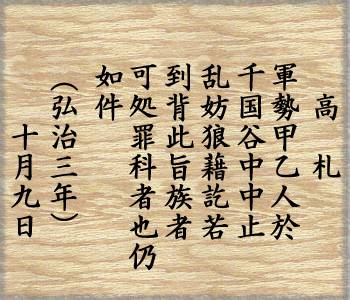 高札
軍勢甲乙人於
千国谷中中止
乱妨狼藉訖若
到背此旨族者
可処罪科者也仍
如件
（弘治三年）
十月九日